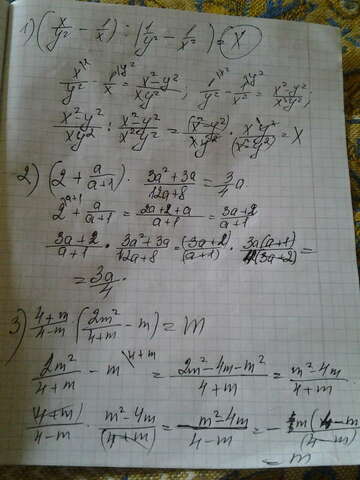 1) (x/y² - 1/x) : (1/y² - 1/x²) = x
x/y² - 1/x = x²-y²/xy² ; 1/y² - 1/x² = x²-y²/x²y² ;
x²-y²/xy² : x²-y²/x²y² = (x²-y²)/xy² · x²y²/(x²-y²) = x
2) (2 + a/a+1) · 3a²+3a/12a+8 = 3/4 a
2 + a/a+1 = 2a+2+a/a+1 = 3a+2/a+1
3a+2/a+1 · 3a²+3a/12a+8 = (3a+2)/(a+1) · 3a(a+1)/4(3a+2) =
= 3a/4 .
3) 4+m/4-m (2m²/4+m - m) = m
2m²/4+m - m \4+m = 2m²-4m-m²/4+m = m²-4m/4+m
(4+m)/4-m · m²-4m/(4+m) = - m²-4m/4-m = - m(4-m)/(4-m)
= m